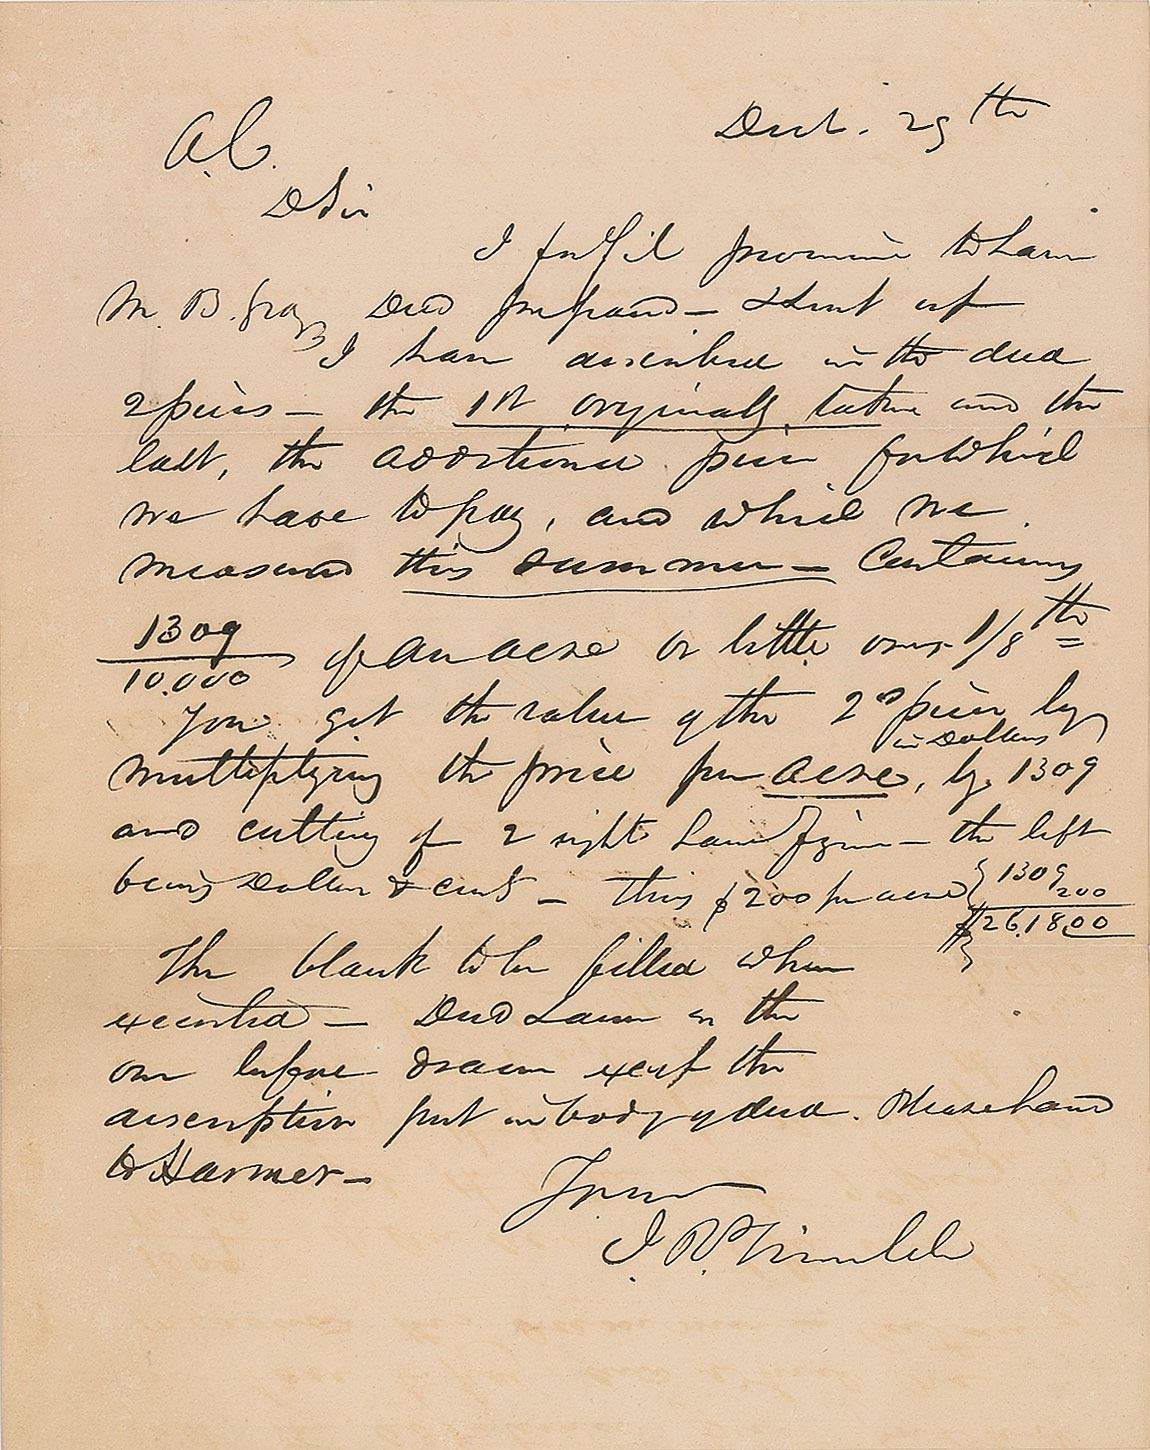 Dect. 29th
A.C.
D Sir
I fulfil promise to have
M. B. Gray Deed prepared — & sent up
I have described in the deed
2 pieces — the 1st originally taken and the
last, the additional piece for which
we have to pay, and which we
measured this summer — Containing
1309/10.000 of an acre or little over 1/8th
You get the value of the 2d piece by
multiplying the price per acre, by 1309
in Dollars
and cutting of 2 right hand figures — the left
being Dollars & cents — thus $200 per acre { 1309
200
$26.18.00
The blank to be filled when
executed — Deed same as the
one before drawn except the
description put in body of deed. Please hand
to Harmer —
Yours
I. R. Trimble